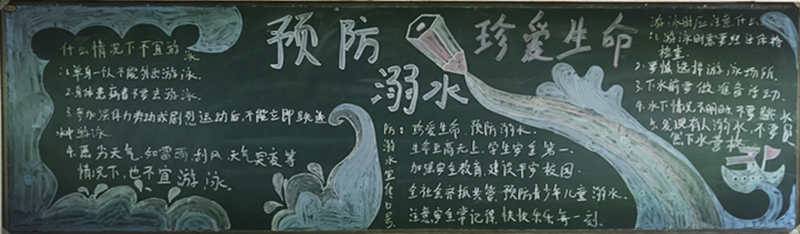 预防
溺水
珍爱生命
什么情况下不宜游泳
1.单身一人不能外出游泳.
2.身体患病者不要去游泳.
3.参加强体力劳动或剧烈运动后,不能立即跳进
水中游泳.
4.恶劣天气,如雷雨,刮风,天气突变等
情况下,也不宜游泳.
防溺水宣传口号:
珍爱生命,预防溺水.
生命至高无上,学生安全第一.
加强安全教育,建设平安校园.
全社会齐抓共管,预防青少年儿童溺水.
注意安全常记得,快快乐乐每一刻.
游泳时应注意什么
1.游泳时需要经过体格
检查.
2.要慎选择游泳场所.
3.下水前要做准备活动.
4.水下情况不明时,不要跳水
5.发现有人溺水,不要贸
然下水营救